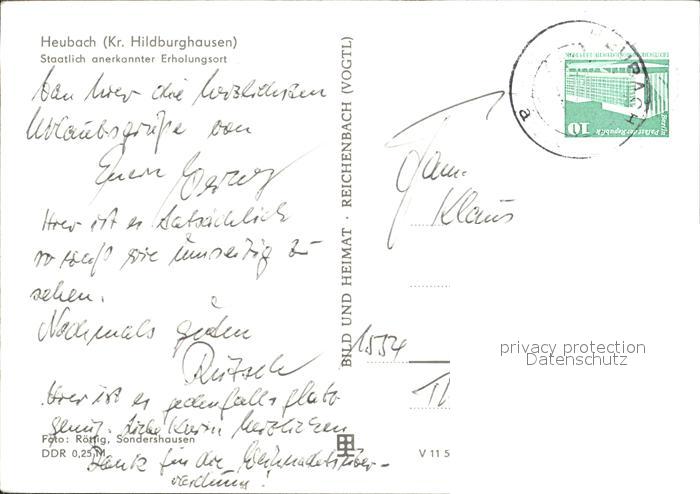 Heubach (Kr. Hildburghausen)
Staatlich anerkannter Erholungsort
Von hier die herzlichsten
Urlaubsgrüße von
Eurem
Hier ist es tatsächlich
so weiß wie umseitig zu
sehen.
Nochmals guten
Rutsch
Hier ist es jedenfalls glatt
genug. Liebe Karin herzlichen
Dank für die Weihnachtsüber-
raschung!
Foto: Röttig, Sondershausen
DDR 0,25 M
BILD UND HEIMAT · REICHENBACH (VOGTL)
V 11 5
Fam.
Klaus
1554
Th
HEUBACH
a
10
Berlin
Palast der Republik
privacy protection
Datenschutz